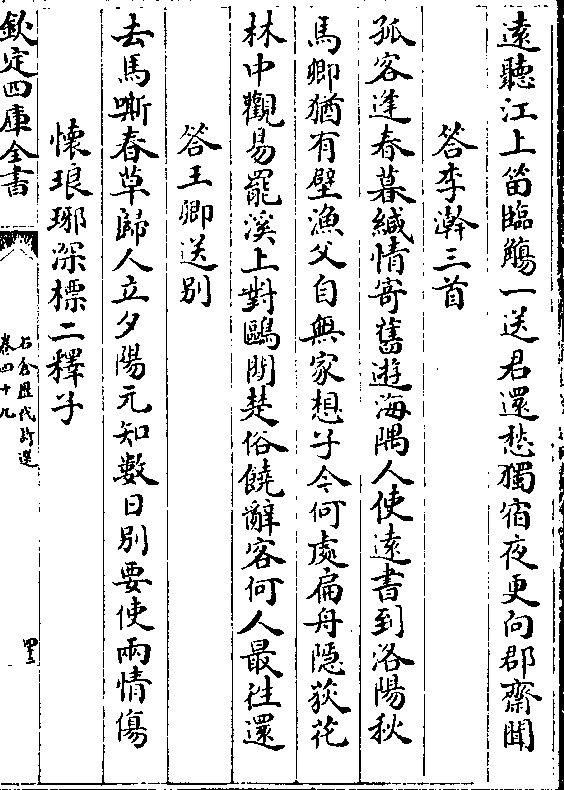 遠聽江上笛臨觴一送君還愁獨宿夜更向郡齋聞
答李澣三首
孤客逢春暮緘情寄舊遊海隅人使遠書到洛陽秋
馬卿猶有壁漁父自無家想子今何處扁舟隱荻花
林中觀易罷溪上對鷗閒楚俗饒辭客何人最往還
答王卿送別
去馬嘶春草歸人立夕陽元知數日別要使兩情傷
懷琅琊深標二釋子
欽定四庫全書
石倉歷代詩選
卷四十九